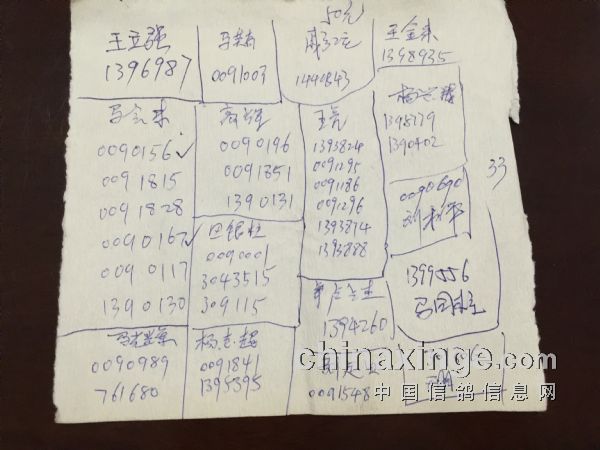 王立强
1396987
0091003
50元
1441843
王金来
1398935
马金来
0090156 ✓
0091815
0091828
0090167 ✓
0090117
1390130
0090196
0091851
1390131
王亮
1393824
0091295
0091186
0091296
1393874
1393888
1390402
33
0090690
田银柱
0090001
3043515
309115
1399556
1394260
0090989
761680
杨志超
0091841
1395395
0091548
chinaxinge.com
中国信鸽信息网